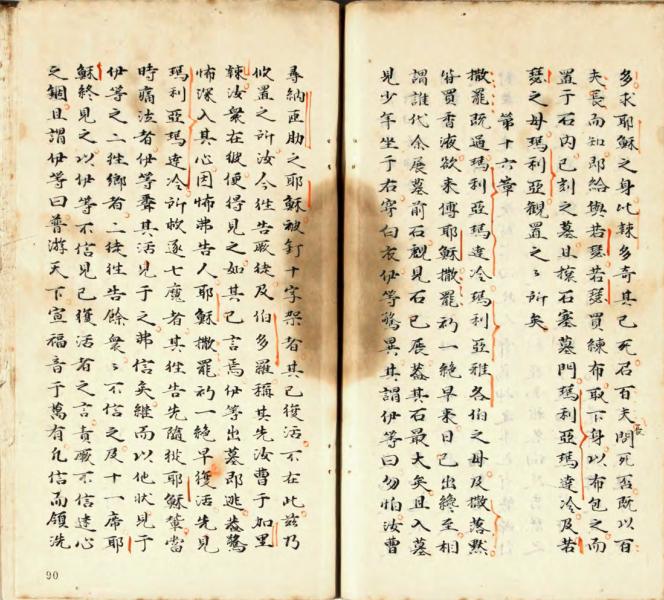 多求耶穌之身比辣多奇其已死召百夫問死否既以百
長
夫長而知即給與若瑟若瑟買練布取下身以布包之而
置于石内已刻之墓且擡石塞墓門瑪利亞瑪達冷及若
瑟之母瑪利亞觀置之之所矣
第十六章
撒罷既過瑪利亞瑪達冷瑪利亞雅各伯之母及撒落默
買香液欲來傅耶穌撒罷初一絕早來日已出纔至相
謂誰代余展墓前石觀見石已展蓋其石最大矣且入墓
見少年坐于右穿白衣伊等驚異其謂伊等曰勿怕汝曹
尋納匝肋之耶穌被釘十字架者其已復活不在此茲乃
攸置之所汝今往告厥徒及伯多羅稱其先汝曹于加里
辣汝衆在彼便得見之如其已言焉伊等出墓即逃蓋驚
怖深入其心因怖弗告人耶穌撒罷初一絕早復活先見
瑪利亞瑪達冷所攸逐七魔者其往告先隨從耶穌輩當
時痛泣者伊等聞其活見于之弗信矣繼而以他狀見于
伊等之二往鄉者二徒往告餘衆之不信之及十一席耶
穌終見之以伊等不信見已復活者之言責厥不信達心
之錮且謂伊等曰普游天下宣福音于萬有凡信而領洗
90